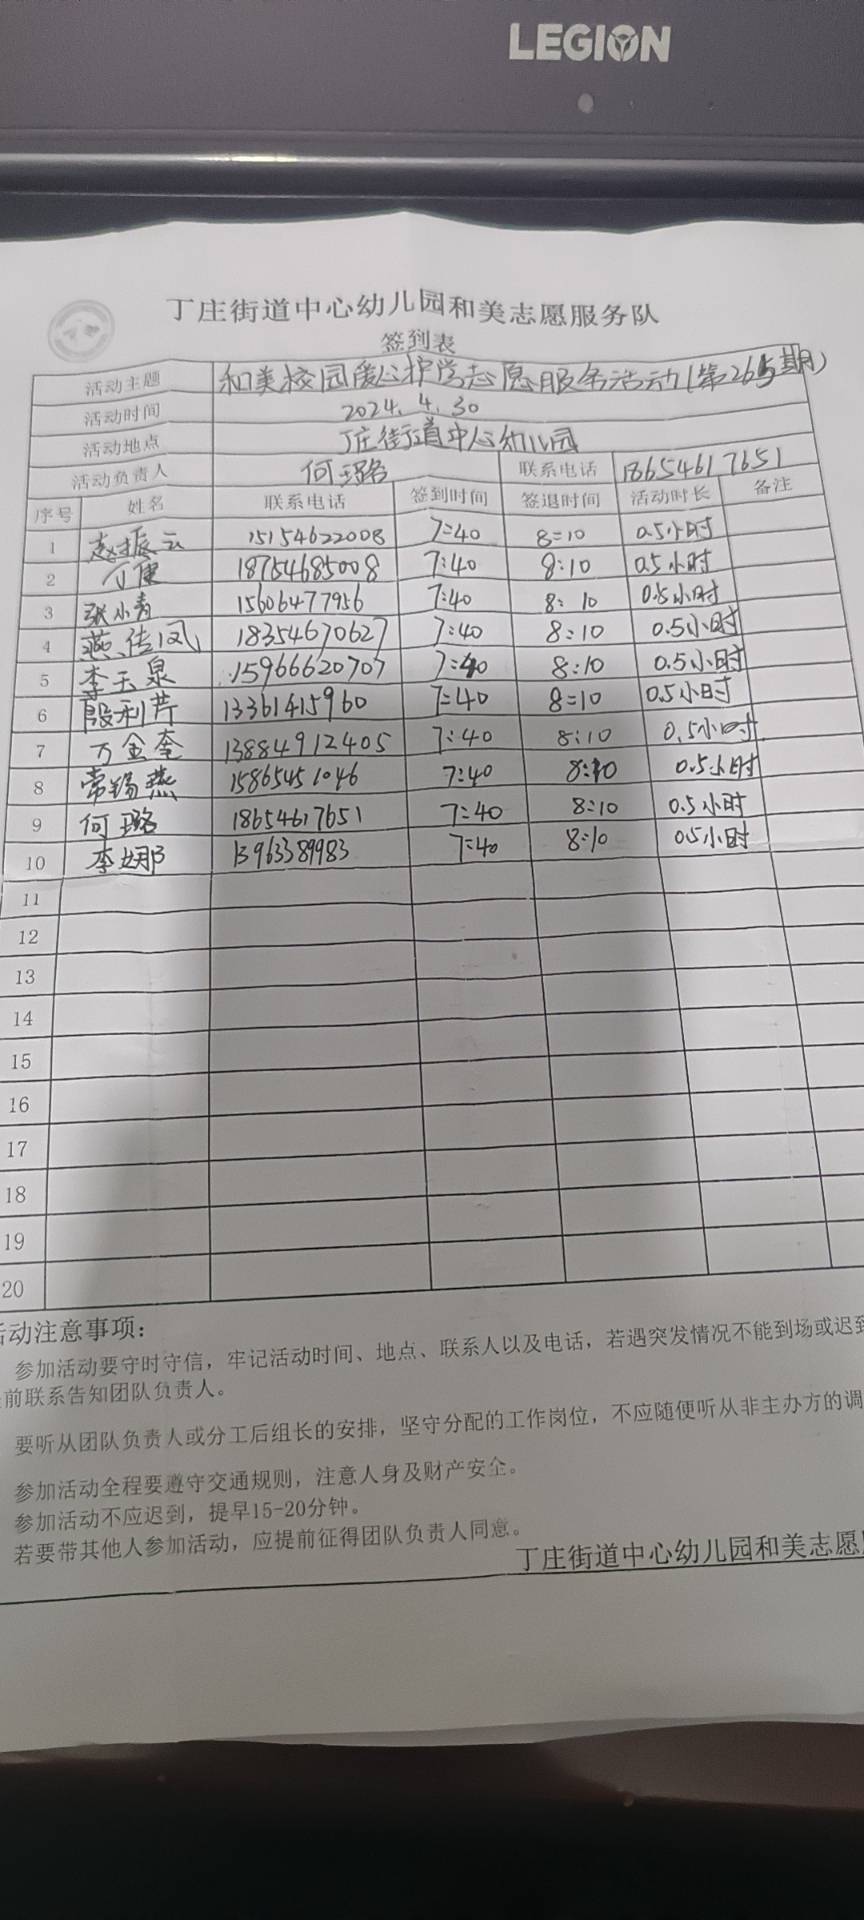 LEGION
丁庄街道中心幼儿园和美志愿服务队
签到表
活动主题 和美校园爱心护学志愿服务活动(第265期)
活动时间 2024.4.30
活动地点 丁庄街道中心幼儿园
活动负责人 何璐 联系电话 18654617651
序号 姓名 联系电话 签到时间 签退时间 活动时长 备注
1 赵振云 15154622008 7:40 8:10 0.5小时
2 18754685008 7:40 8:10 0.5小时
3 张小青 15606477956 7:40 8:10 0.5小时
4 燕传凤 18354670627 7:40 8:10 0.5小时
5 李玉泉 15966620707 7:40 8:10 0.5小时
6 殷利芹 13361415960 7:40 8:10 0.5小时
7 万金奎 13884912405 7:40 8:10 0.5小时
8 常锡燕 15865451046 7:40 8:10 0.5小时
9 何璐 18654617651 7:40 8:10 0.5小时
10 李娜 13963389983 7:40 8:10 0.5小时
11
12
13
14
15
16
17
18
19
20
活动注意事项:
参加活动要守时守信，牢记活动时间、地点、联系人以及电话，若遇突发情况不能到场或迟到
前联系告知团队负责人。
要听从团队负责人或分工后组长的安排，坚守分配的工作岗位，不应随便听从非主办方的调
参加活动全程要遵守交通规则，注意人身及财产安全。
参加活动不应迟到，提早15-20分钟。
若要带其他人参加活动，应提前征得团队负责人同意。
丁庄街道中心幼儿园和美志愿